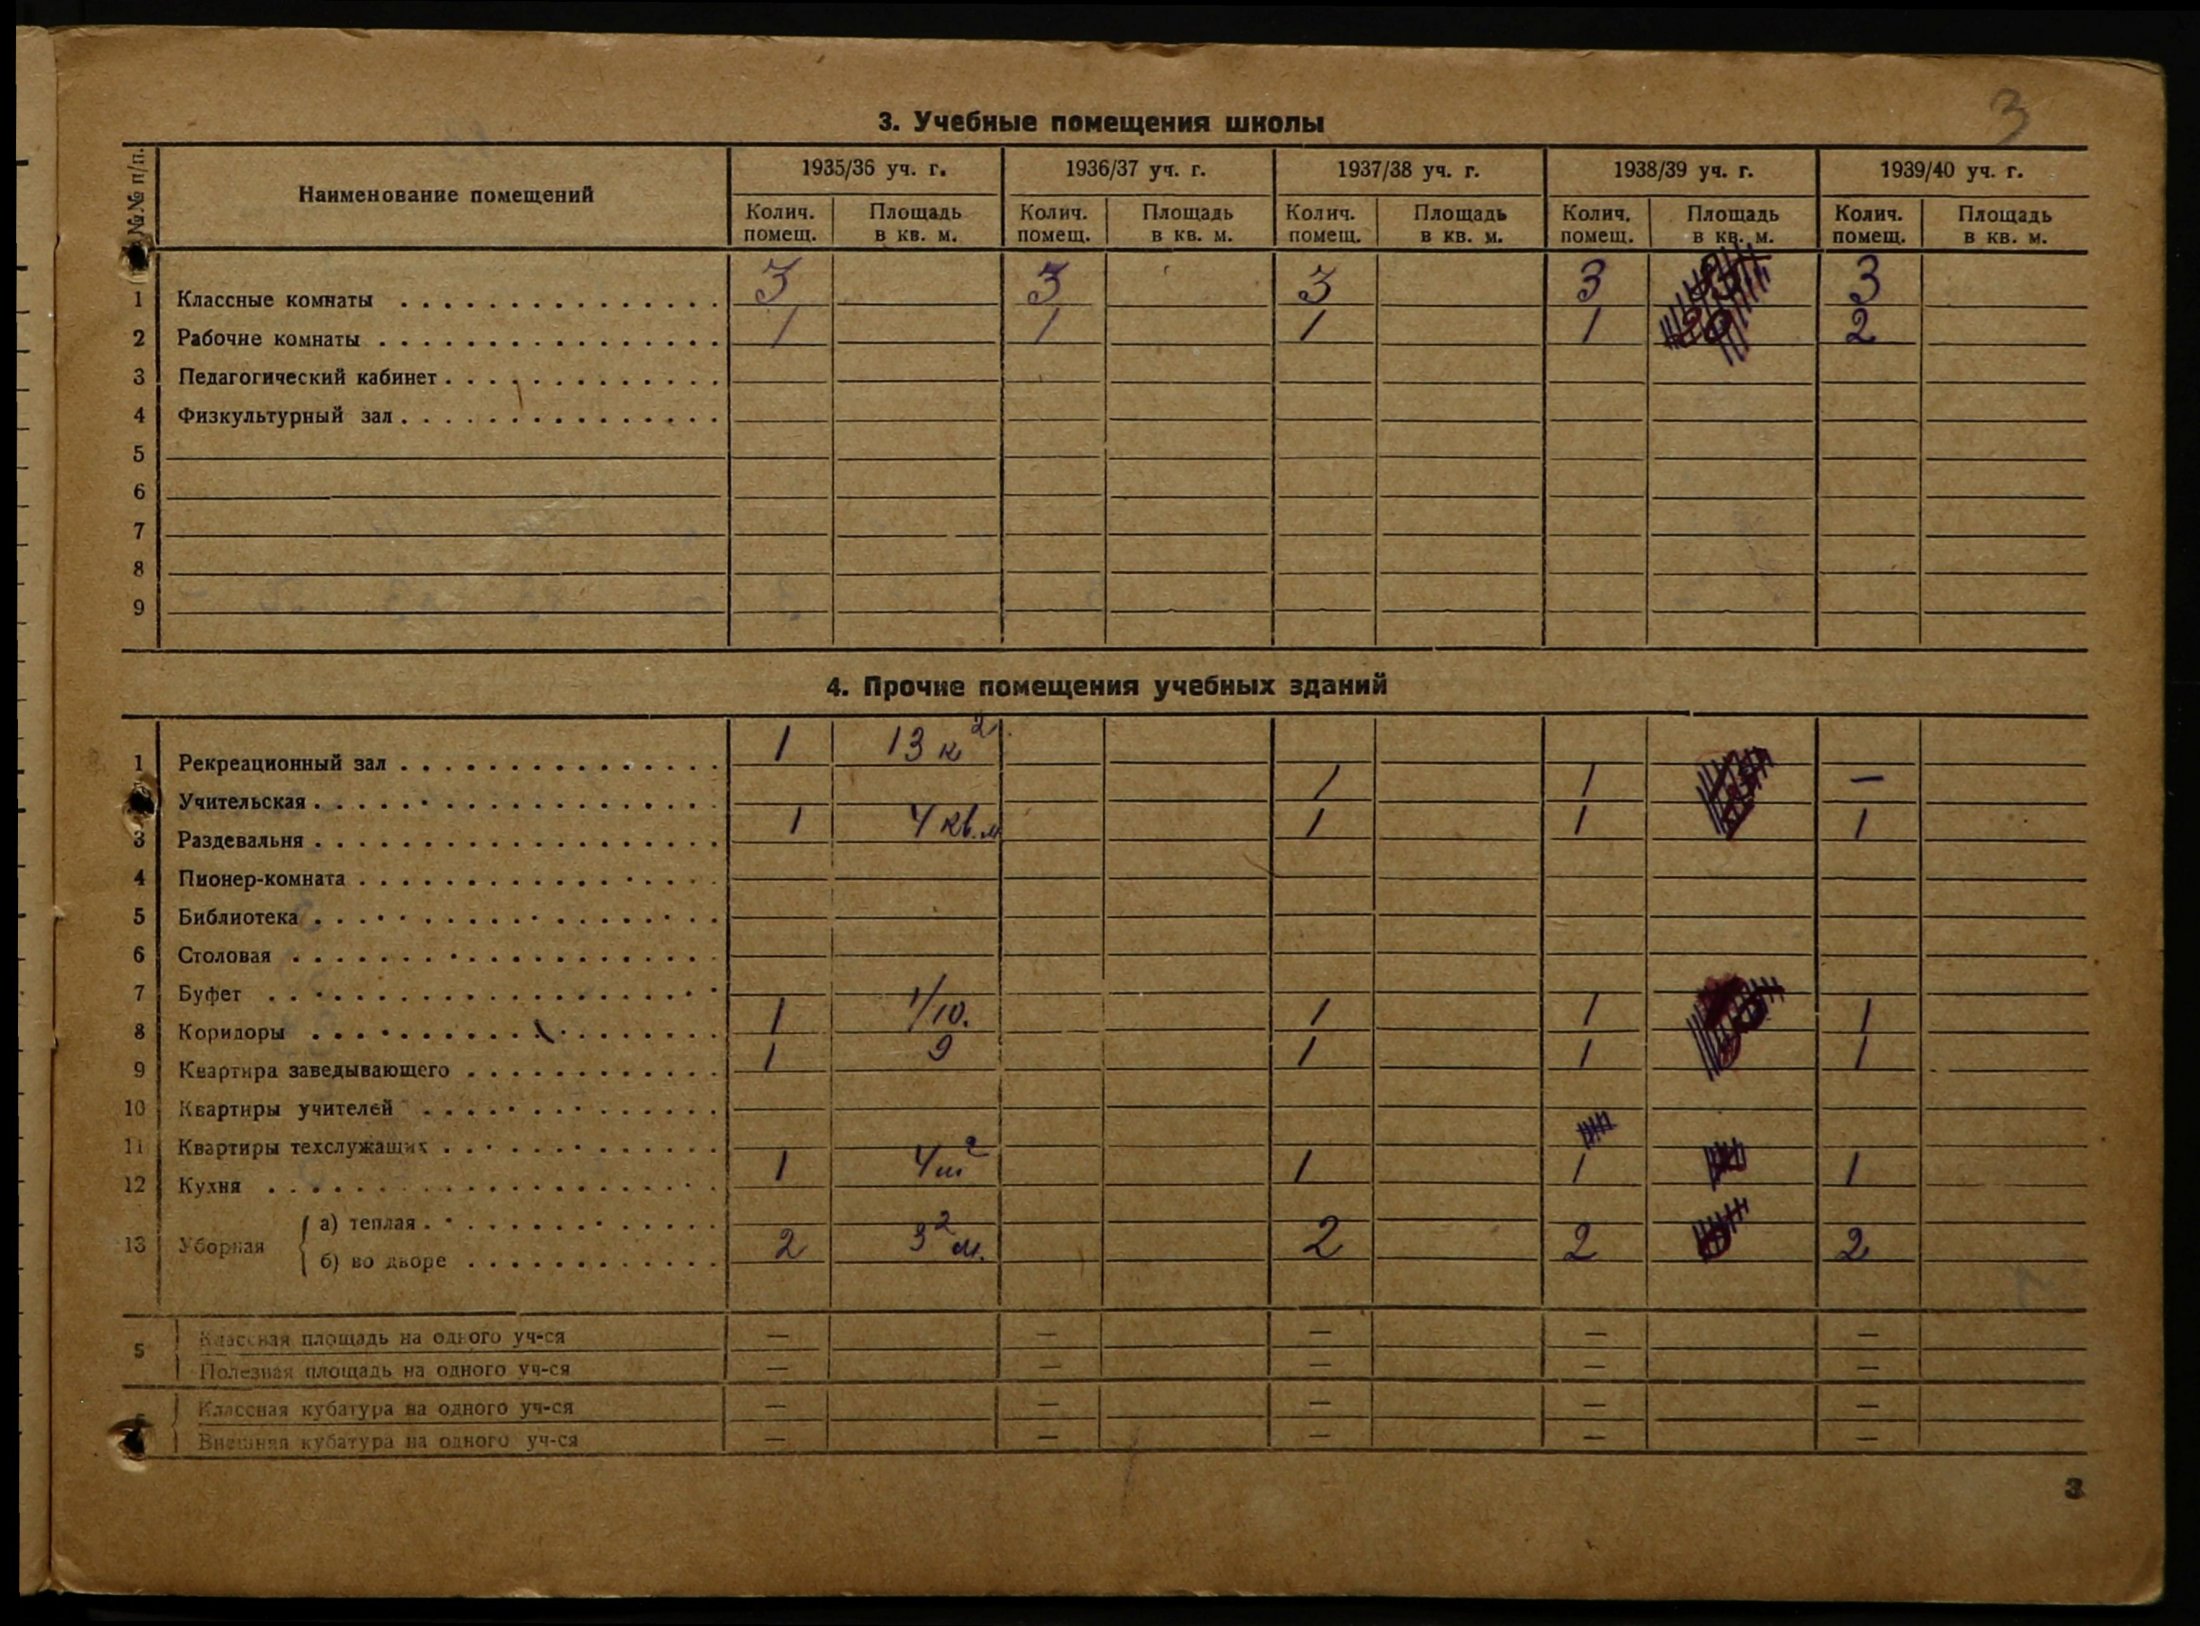 3
3. Учебные помещения школы
№№ п/п. Наименование помещений 1935/36 уч. г. 1936/37 уч. г. 1937/38 уч. г. 1938/39 уч. г. 1939/40 уч. г.
Колич. помещ. Площадь в кв. м. Колич. помещ. Площадь в кв. м. Колич. помещ. Площадь в кв. м. Колич. помещ. Площадь в кв. м. Колич. помещ. Площадь в кв. м.
1 Классные комнаты 3 3 3 3 3
2 Рабочие комнаты 1 1 1 1 2
3 Педагогический кабинет
4 Физкультурный зал
5
6
7
8
9
4. Прочие помещения учебных зданий
1 Рекреационный зал 1 13 к²
Учительская 1 1 —
3 Раздевальня 1 4 кв. м 1 1 1
4 Пионер-комната
5 Библиотека
6 Столовая
7 Буфет
8 Коридоры 1 1/10. 1 1 1
9 Квартира заведывающего 1 9 1 1 1
10 Квартиры учителей
11 Квартиры техслужащих
12 Кухня 1 4 м² 1 1 1
13 Уборная а) теплая
б) во дворе 2 3² м. 2 2 2
5 Классная площадь на одного уч-ся — — — — —
Полезная площадь на одного уч-ся — — — — —
Классная кубатура на одного уч-ся — — — — —
Внешняя кубатура на одного уч-ся — — — — —
3